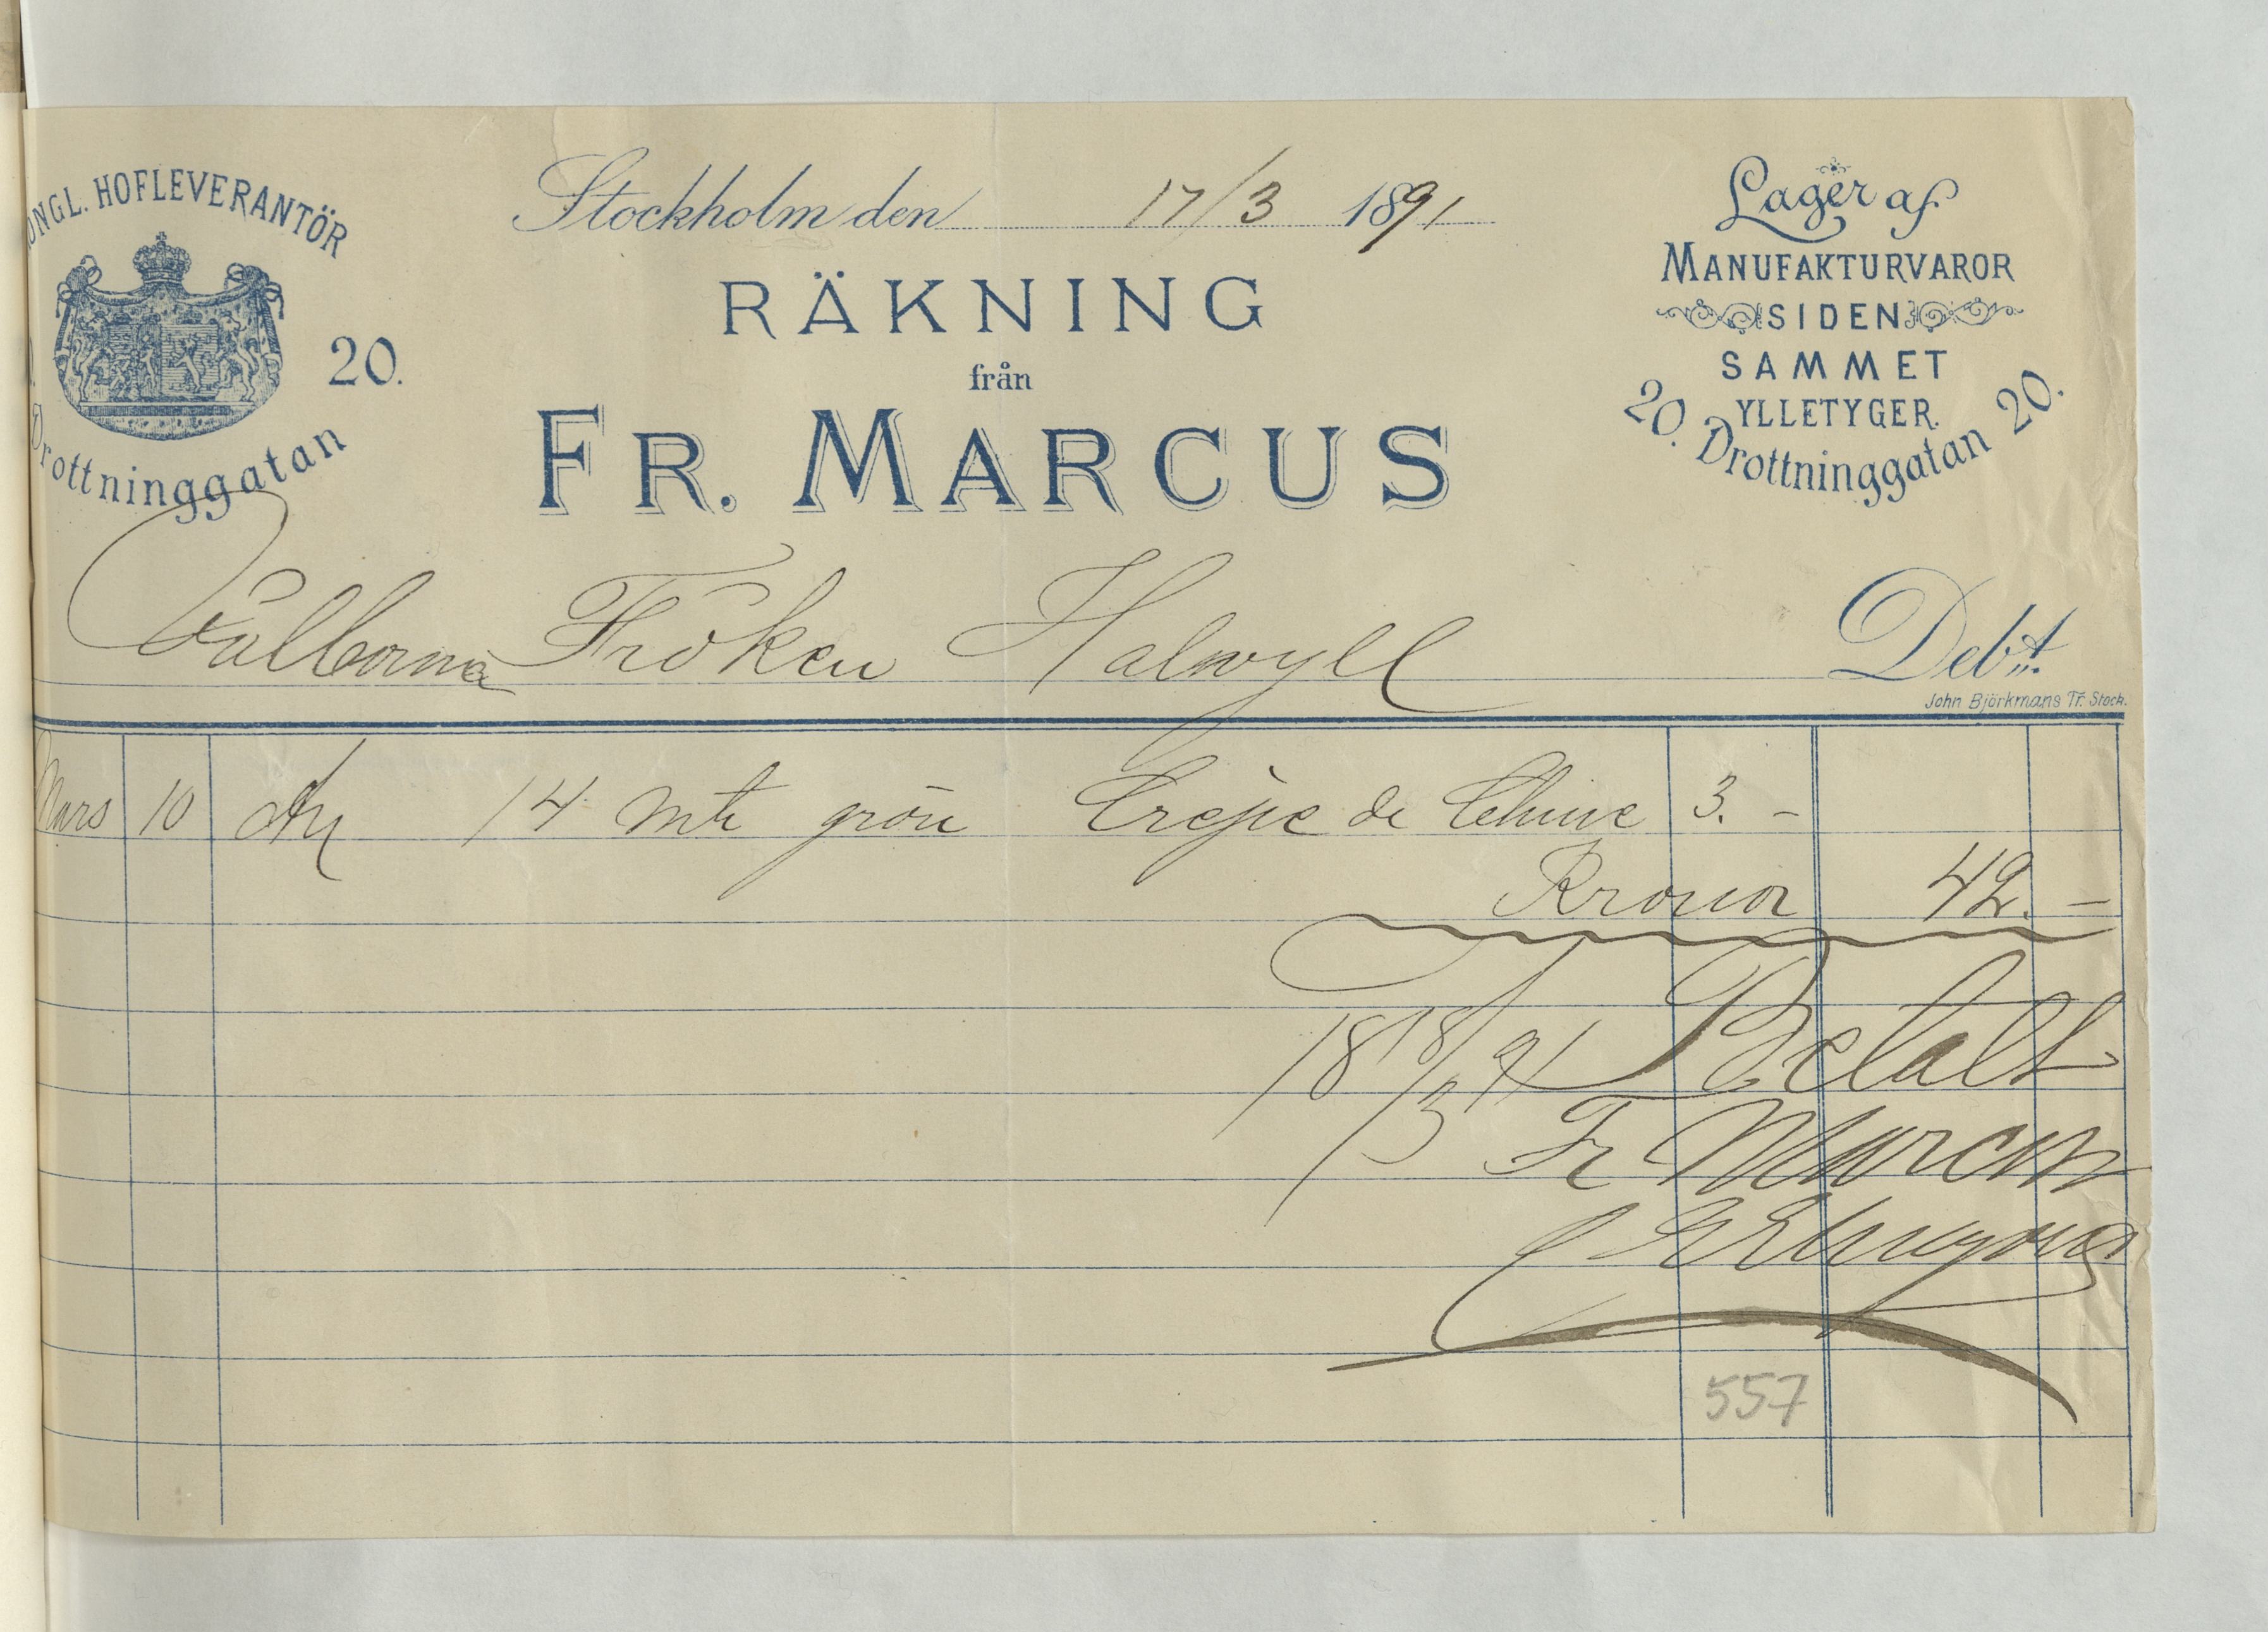 ONGL. HOFLEVERANTÖR
20.
Drottninggatan
Stockholm den 17/3 1891
RÄKNING
från
FR. MARCUS
Lager af
MANUFAKTURVAROR
SIDEN
SAMMET
YLLETYGER.
20. Drottninggatan 20.
Välborna Fröken Halwyll Debt.
John Björkmans Tr. Stock.
Mars 10 14 mtr grön Crepe de Chine 3. –
Kronor 42. –
18 18/3 91 Betalt
Fr Marcus
557